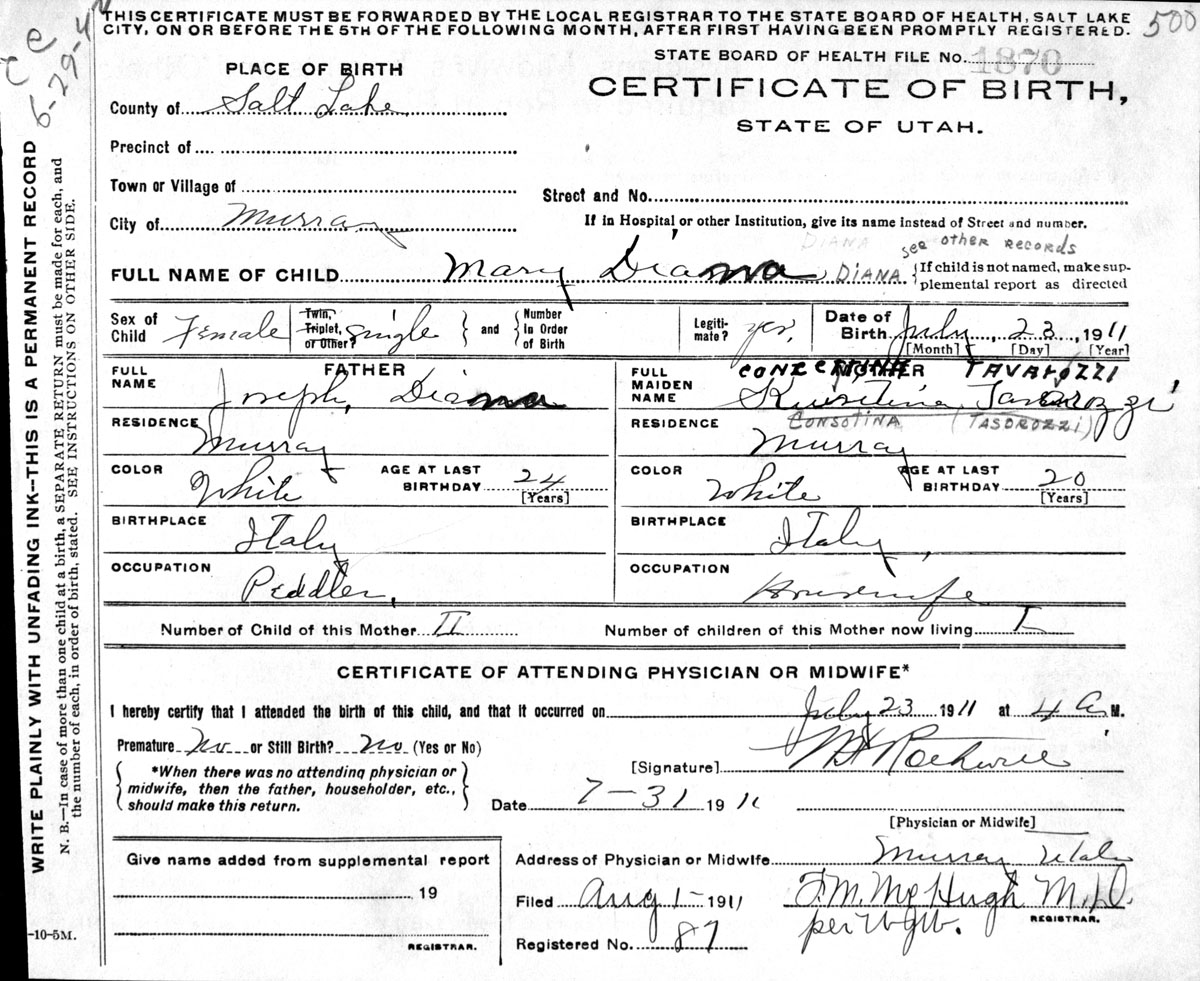 THIS CERTIFICATE MUST BE FORWARDED BY THE LOCAL REGISTRAR TO THE STATE BOARD OF HEALTH, SALT LAKE
CITY, ON OR BEFORE THE 5TH OF THE FOLLOWING MONTH, AFTER FIRST HAVING BEEN PROMPTLY REGISTERED.
500
5-29-4
STATE BOARD OF HEALTH FILE No. 1870
PLACE OF BIRTH
CERTIFICATE OF BIRTH,
STATE OF UTAH.
County of Salt Lake
Precinct of
Town or Village of
Street and No.
City of Murray
If in Hospital or other Institution, give its name instead of Street and number.
DIANA see other records
FULL NAME OF CHILD Mary Diana DIANA {If child is not named, make sup-
plemental report as directed
Sex of Child Female
Twin, Triplet, or Other? single } and { Number in Order of Birth
Legiti-mate? yes,
Date of Birth July, 23, 1911
[Month] [Day] [Year]
FATHER
FULL NAME Joseph, Diana
RESIDENCE Murray
COLOR White
AGE AT LAST BIRTHDAY 24 [Years]
BIRTHPLACE Italy
OCCUPATION Peddler,
MOTHER
TAVAROZZI
FULL MAIDEN NAME
CONSOTINA (TASOROZZI)
RESIDENCE Murray
COLOR White
AGE AT LAST BIRTHDAY 20 [Years]
BIRTHPLACE Italy,
OCCUPATION Housewife
Number of Child of this Mother II Number of children of this Mother now living I
CERTIFICATE OF ATTENDING PHYSICIAN OR MIDWIFE*
I hereby certify that I attended the birth of this child, and that it occurred on July 23 1911 at 4 a M.
Premature No or Still Birth? No (Yes or No)
[Signature] Rockwell
{*When there was no attending physician or
midwife, then the father, householder, etc.,
should make this return.}
Date 7-31 1911
[Physician or Midwife]
Give name added from supplemental report
19
REGISTRAR.
Address of Physician or Midwife Murray Utah
Filed Aug 1- 1911 F. M. McHugh M.D.
REGISTRAR.
per
Registered No. 87
-10-5M.
WRITE PLAINLY WITH UNFADING INK--THIS IS A PERMANENT RECORD
N. B.—In case of more than one child at a birth, a SEPARATE RETURN must be made for each, and
the number of each, in order of birth, stated. SEE INSTRUCTIONS ON OTHER SIDE.